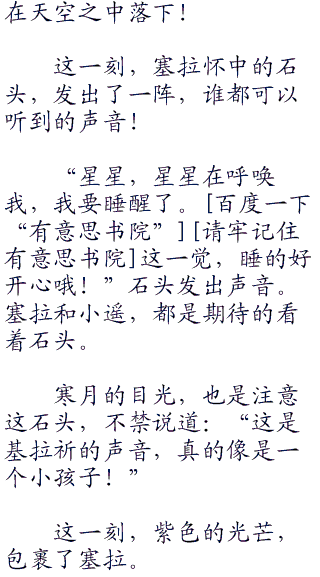 在天空之中落下！
这一刻，塞拉怀中的石
头，发出了一阵，谁都可以
听到的声音！
“星星，星星在呼唤
我，我要睡醒了。[百度一下
“有意思书院”][请牢记住
有意思书院]这一觉，睡的好
开心哦！”石头发出声音。
塞拉和小遥，都是期待的看
着石头。
寒月的目光，也是注意
这石头，不禁说道：“这是
基拉祈的声音，真的像是一
个小孩子！”
这一刻，紫色的光芒，
包裹了塞拉。